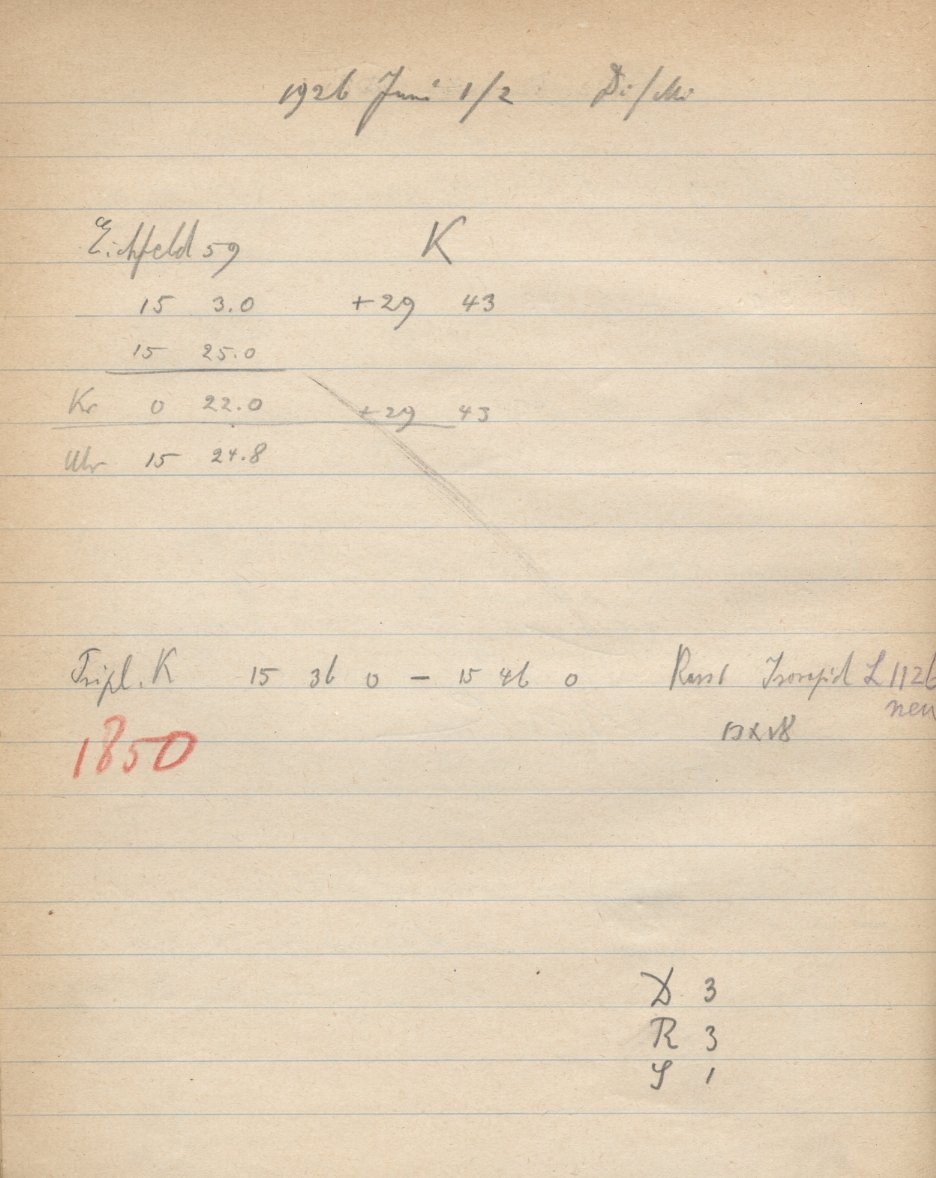 1926 Juni 1/2 Di/Mi
Eichfeld 59 K
15 3.0 +29 43
15 25.0
Kr 0 22.0 +29 43
Uhr 15 24.8
Tripl. K 15 36 0 — 15 46 0 Isorapid L 1126
neu
1850
D 3
R 3
S 1